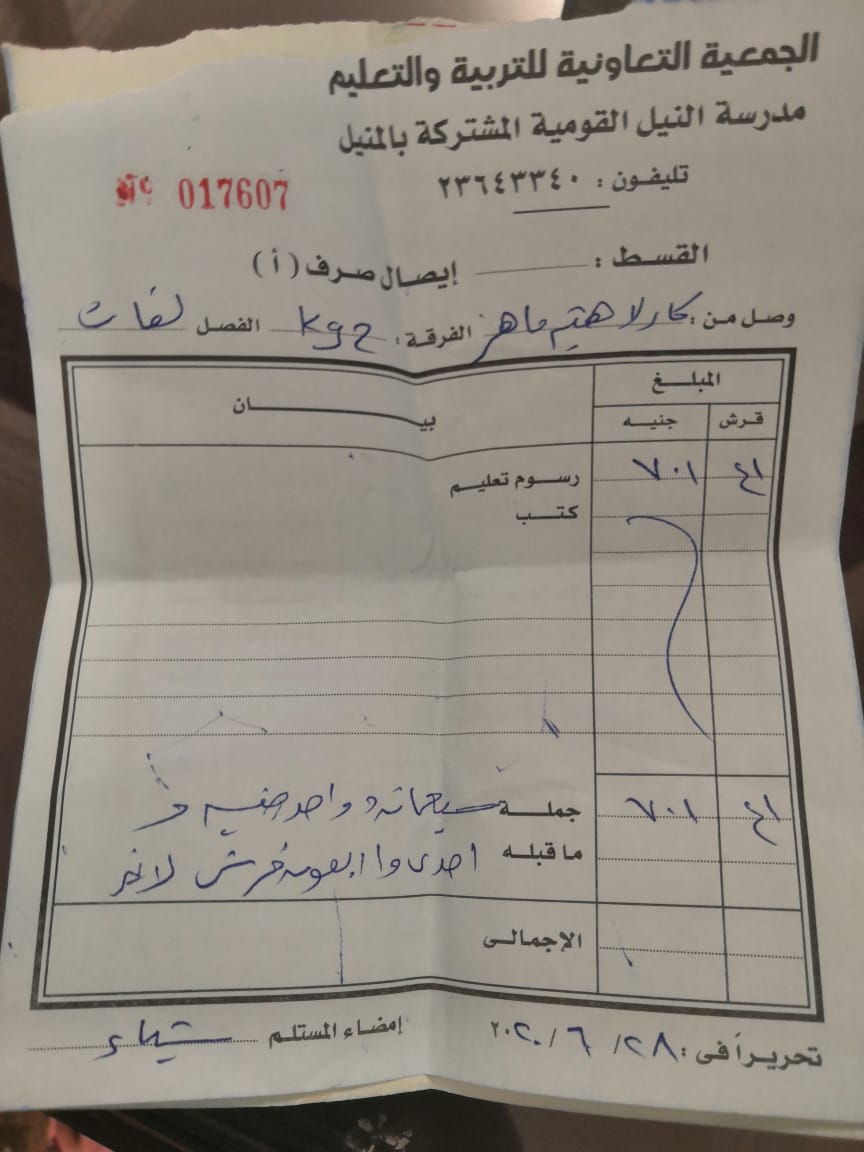 الجمعية التعاونية للتربية والتعليم
مدرسة النيل القومية المشتركة بالمنيل
تليفون : ٢٣٦٤٣٣٤٠
№ 017607
القسط : إيصال صرف ( أ )
وصل من : كارلا هيثم ماهر الفرقة : kg2 الفصل لغات
المبلغ بيان
قرش جنيه
٤١ ٧٠١ رسوم تعليم
كتب
٤١ ٧٠١ جملة سبعمائه وواحد جنيه و
ما قبله احدى واربعون قرش لاغير
الإجمالى
تحريراً فى : ٢٨ / ٦ / ٢٠٢٠ إمضاء المستلم شيماء